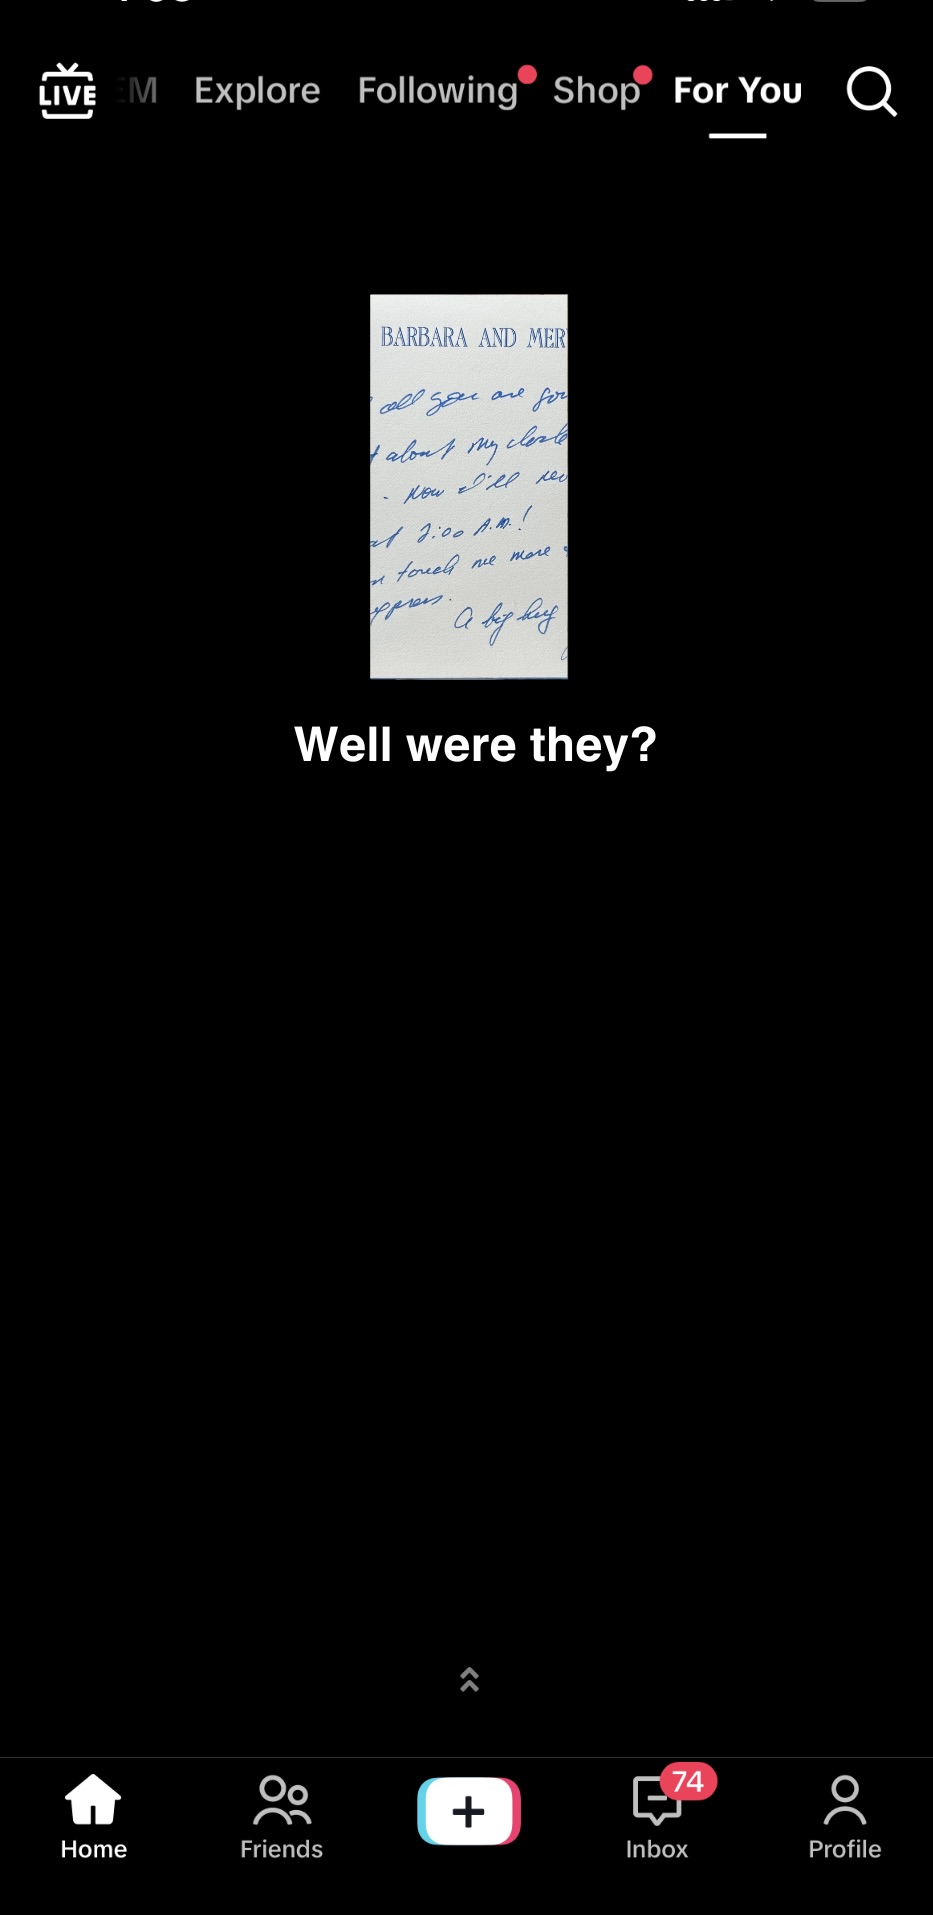 LIVE EM Explore Following Shop For You
BARBARA AND MER
all you are
about my
- Now I'll
at 2:00 A.M.!
touch me more
express.
A big hug
Well were they?
74
Home Friends Inbox Profile